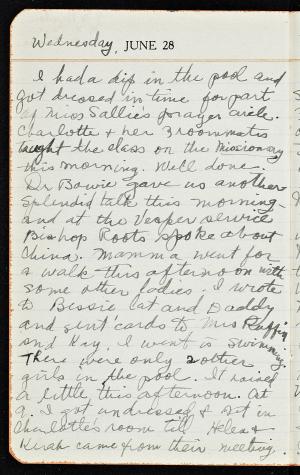 Wednesday, JUNE 28
I had a dip in the pool and
got dressed in time for part
of Miss Sallie's prayer circle.
Charlotte & her 3 roommates
taught the class on the Missionary
this morning. Well done.
Dr Bowie gave us another
splendid talk this morning
and at the Vesper service
Bishop Roots spoke about
China. Mamma went for
a walk this afternoon with
some other ladies. I wrote
to Bessie Cat and Daddy
and sent cards to Mrs Ruffin
and Kay. I went in swimming.
There were only 2 other
girls in the pool. It rained
a little this afternoon. At
9. I got undressed & sat in
Charlotte's room till Helen &
came from their meeting.